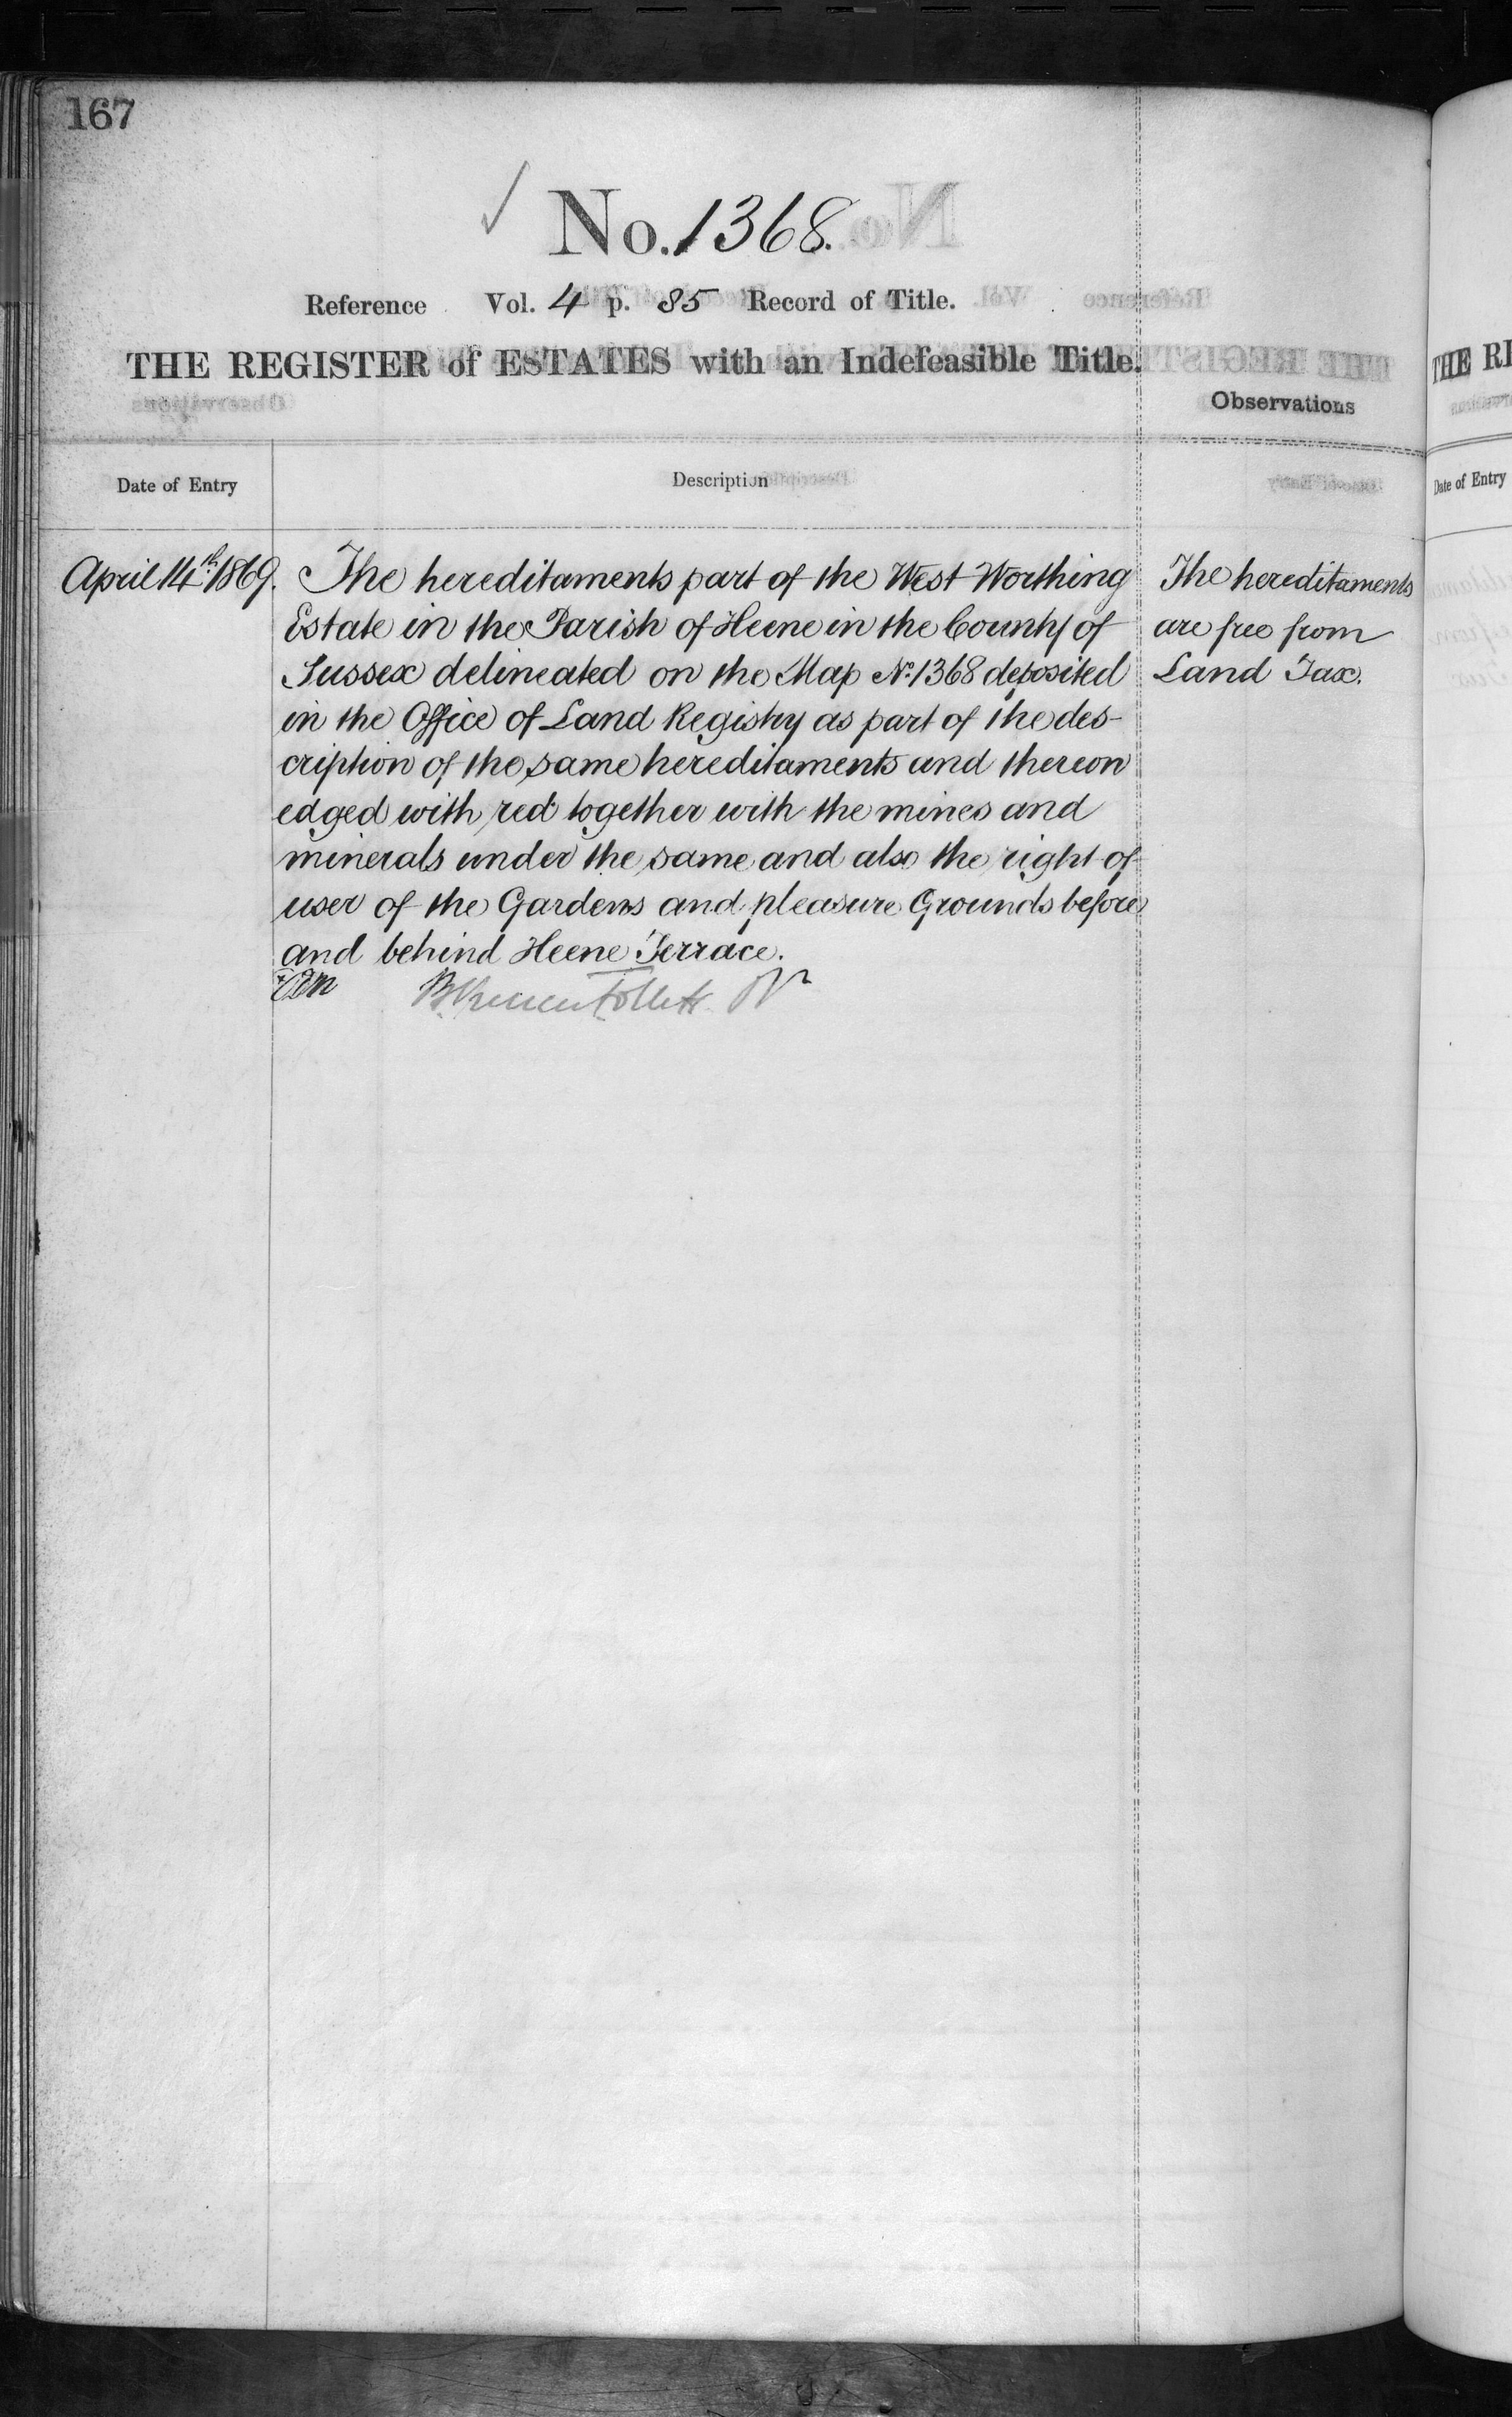 167
✓ No. 1368.
Reference Vol. 4 p. 85 Record of Title.
THE REGISTER of ESTATES with an Indefeasible Title.
Observations
Date of Entry
Description
April 14th 1869.
The hereditaments part of the West Worthing
Estate in the Parish of Heene in the County of
Sussex delineated on the Map No. 1368 deposited
in the Office of Land Registry as part of the des-
cription of the same hereditaments and thereon
edged with red together with the mines and
minerals under the same and also the right of
user of the Gardens and pleasure Grounds before
and behind Heene Terrace.
The hereditaments
are free from
Land Tax.
Follett
THE RE
Date of Entry